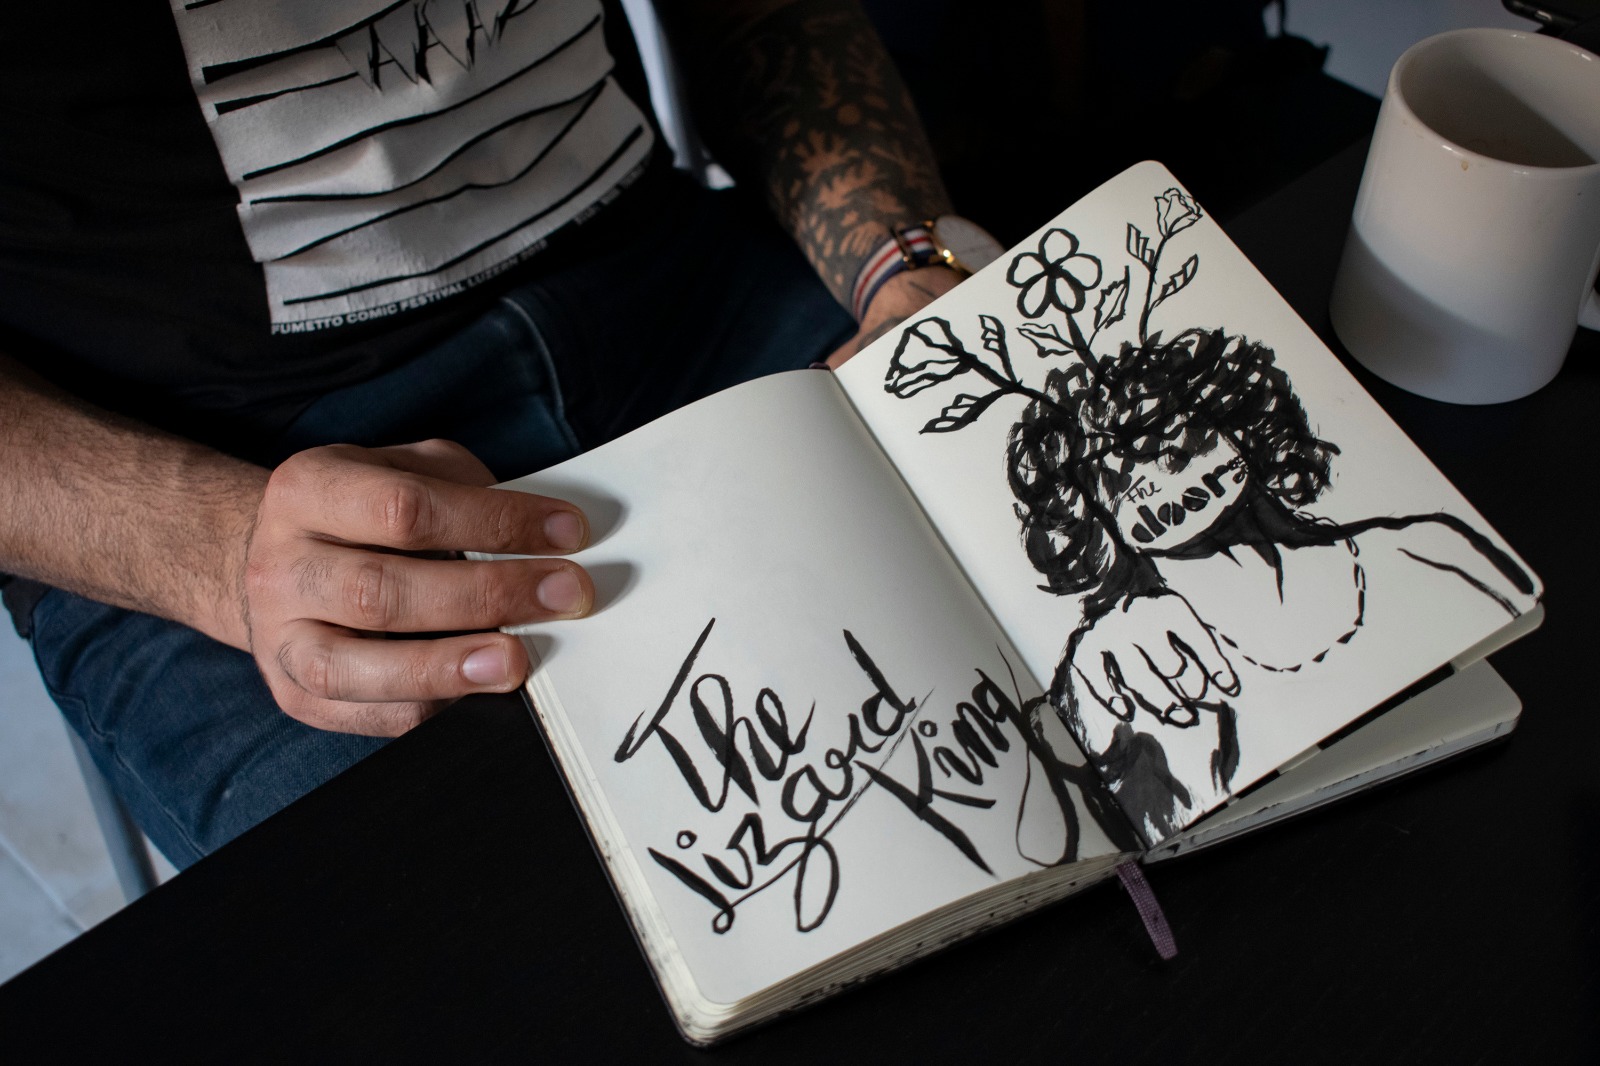 AAAA
FUMETTO COMIC FESTIVAL LUZERN 2018
The
lizard
King
The
doors